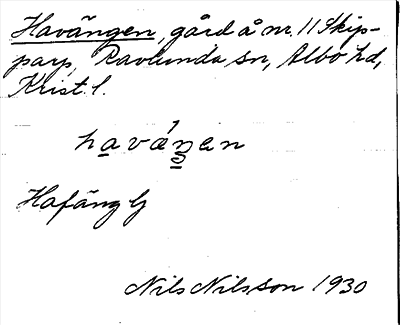 Havängen, gård å nr 11 Skip-
parp, Ravlunda sn, Albo hd,
Krist. l.
Hafäng G
Nils Nilsson 1930